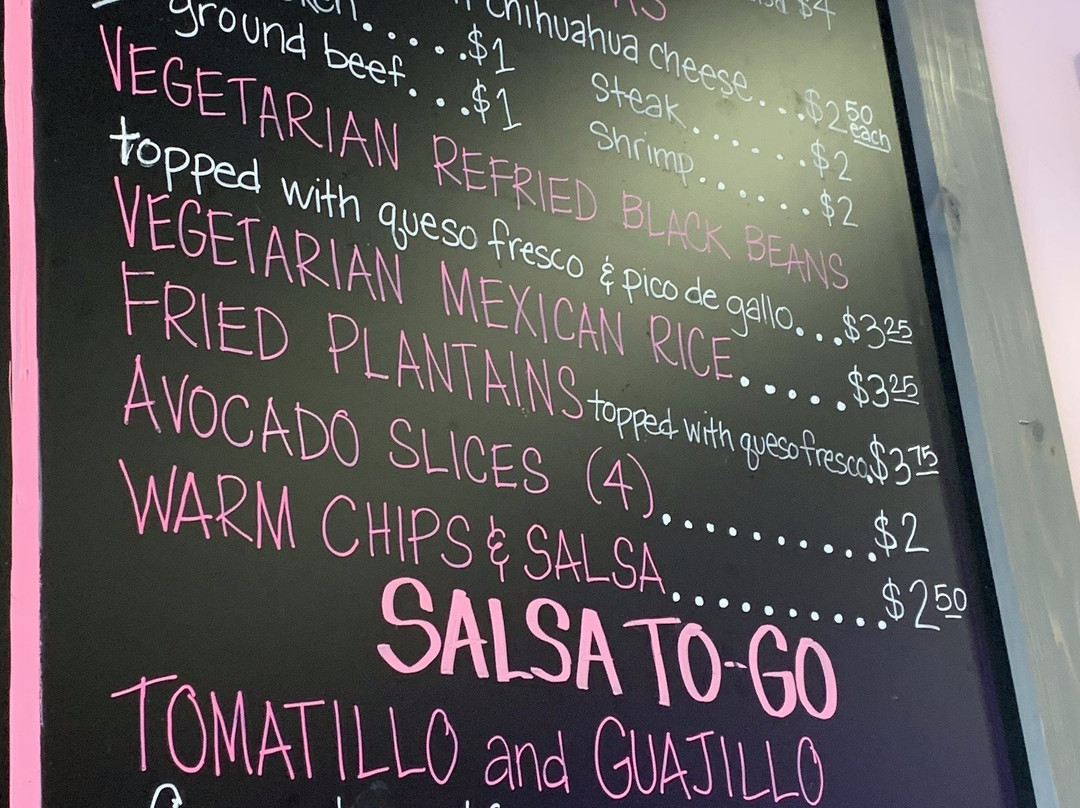 $4
chihuahua cheese...$2 50 each
$1
ground beef...$1
Steak.......$2
Shrimp.......$2
VEGETARIAN REFRIED BLACK BEANS
topped with queso fresco & pico de gallo...$3 25
VEGETARIAN MEXICAN RICE......$3 25
FRIED PLANTAINS topped with queso fresco.$3 75
AVOCADO SLICES (4)..........$2
WARM CHIPS & SALSA..........$2 50
SALSA TO-GO
TOMATILLO and GUAJILLO